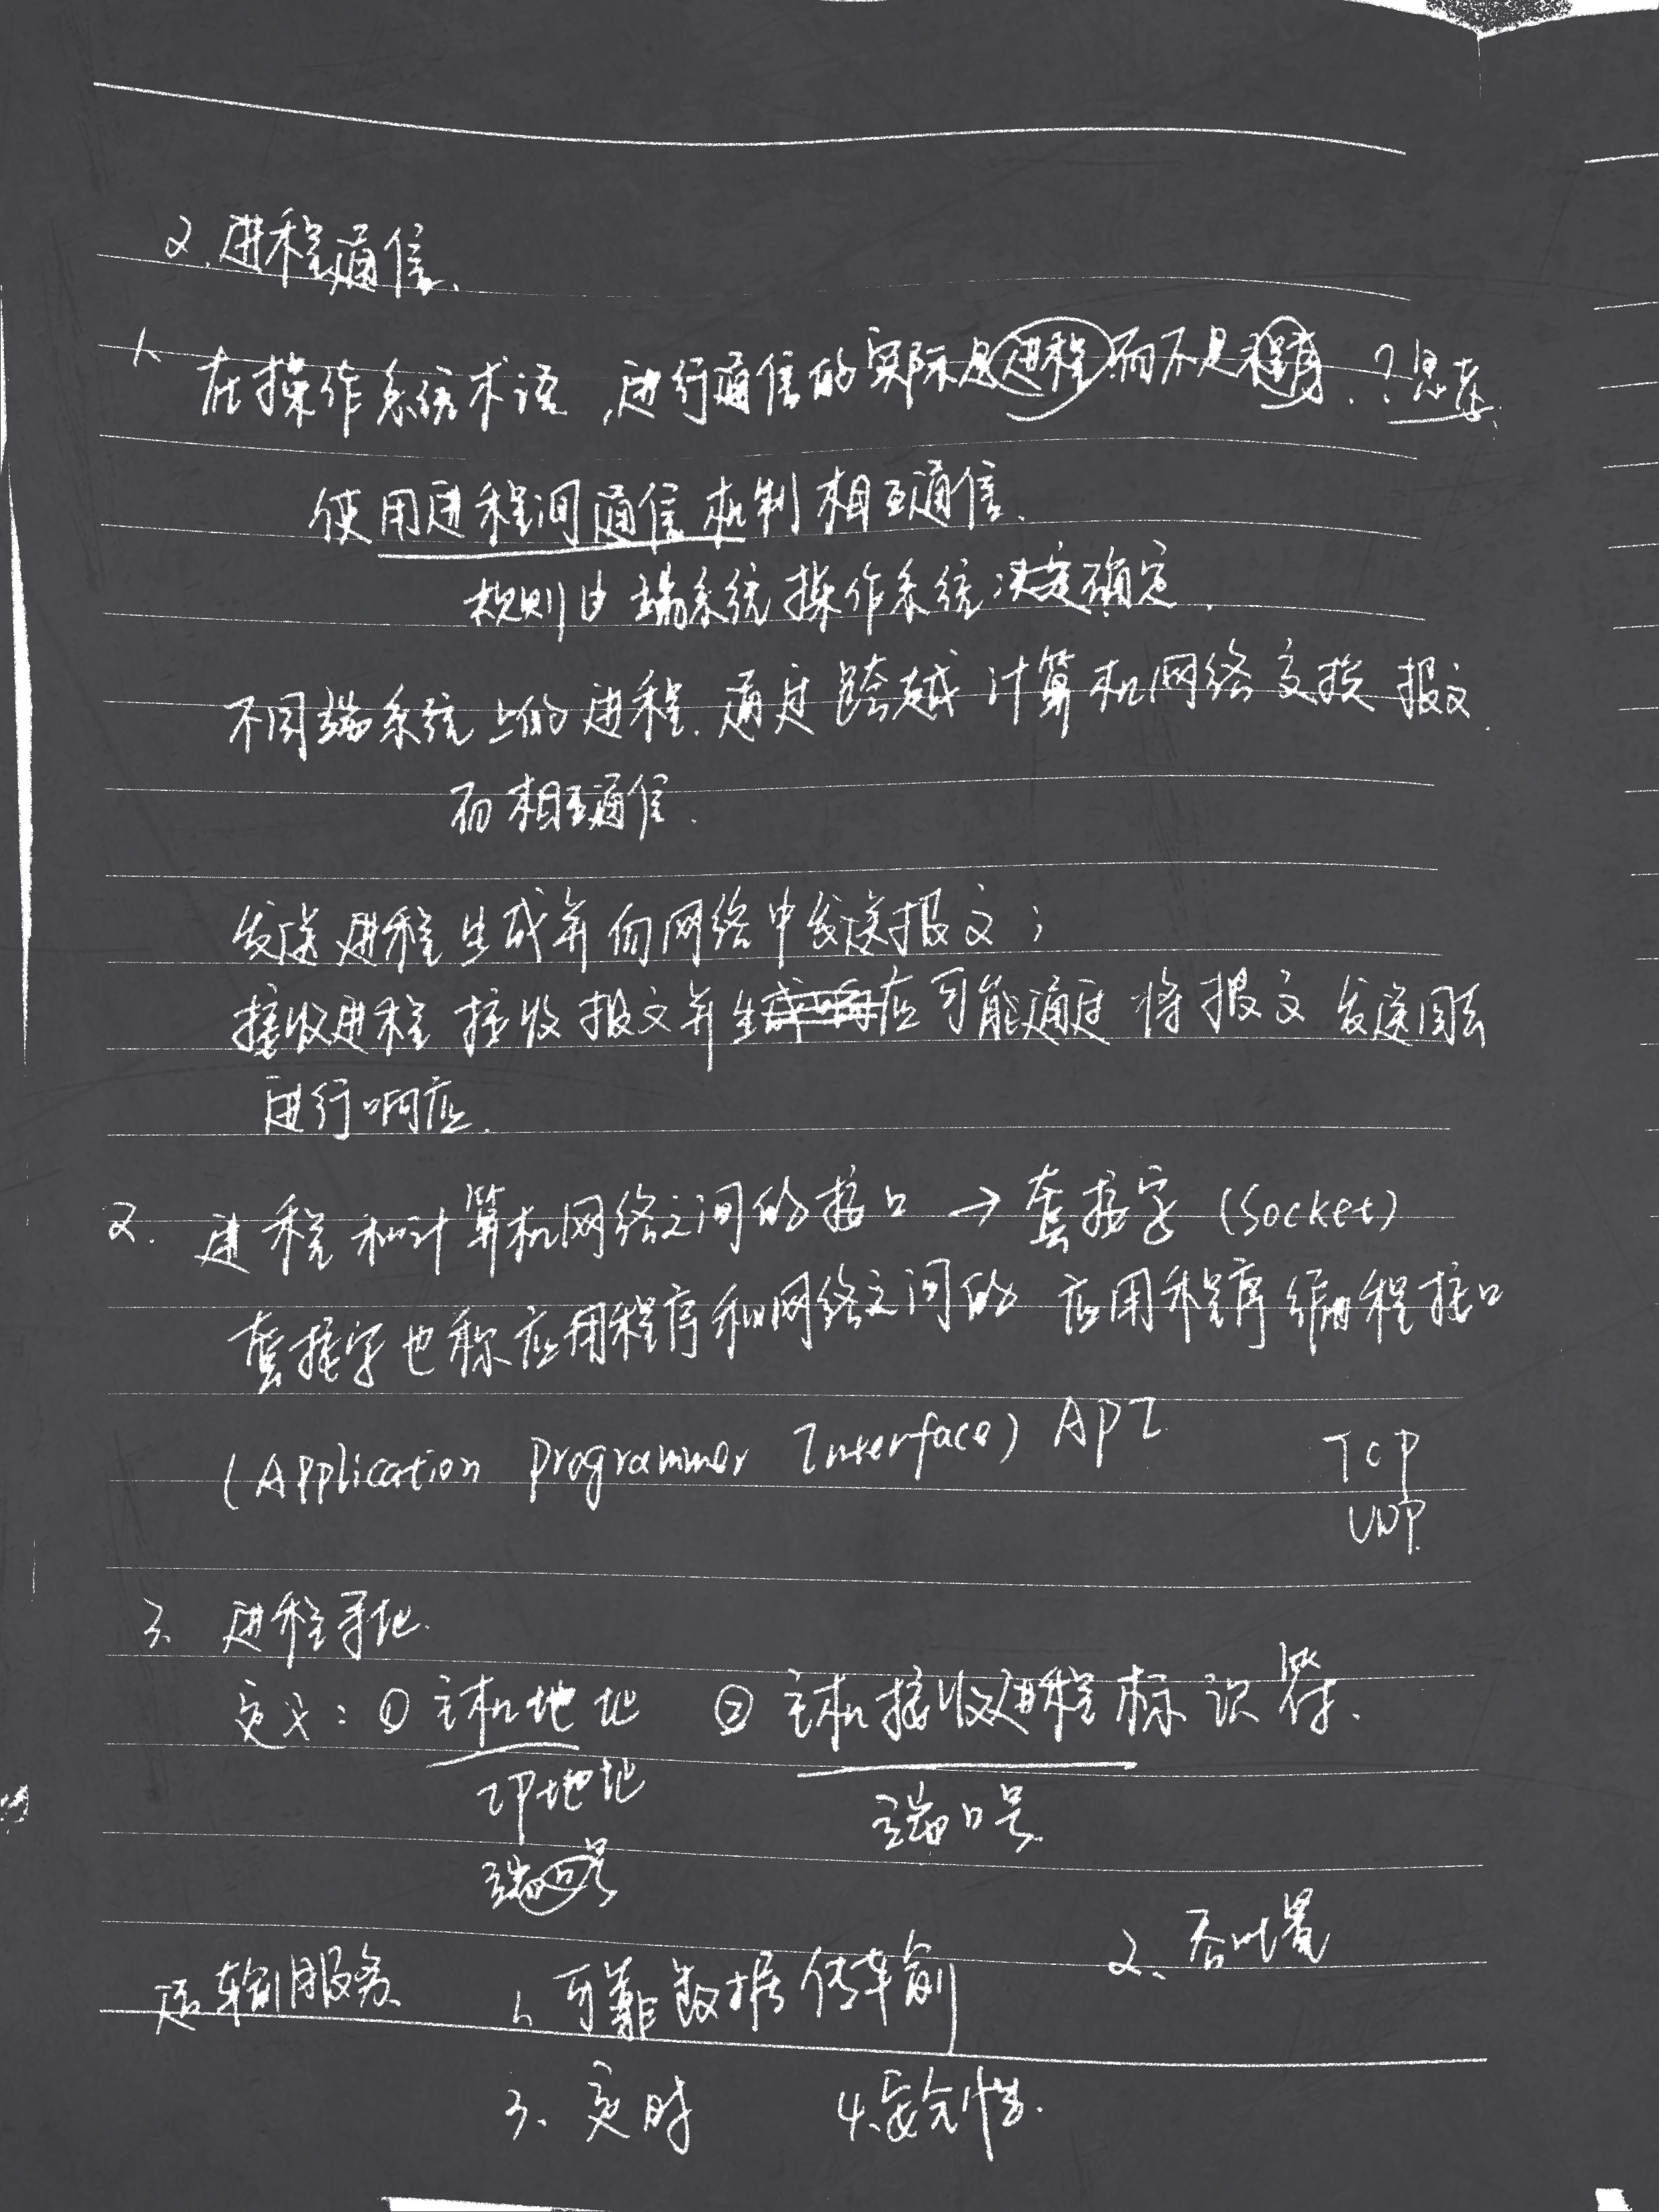 2. 进程通信.
1、在操作系统术语,进行通信的实际是进程而不是程序.?思考.
使用进程间通信机制相互通信.
规则由端系统操作系统决定确定.
不同端系统上的进程.通过跨越计算机网络交换报文.
而相互通信.
发送进程生成并向网络中发送报文;
接收进程接收报文并可能通过将报文发送回去
进行响应.
2. 进程和计算机网络之间的接口→套接字(Socket)
套接字也称应用程序和网络之间的应用程序编程接口
(Application Programmer Interface) API
TCP
UDP.
3、进程寻址.
定义:① 主机地址 ② 主机接收进程标识符.
IP地址 端口号
端口号
运输服务 1、可靠数据传输 2、吞吐量
3、定时 4、安全性.